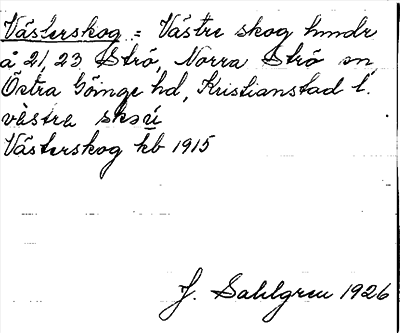 Västerskog = Västre skog hmdr
å 21, 23 Strö, Norra Strö sn,
Östra Göinge hd, Kristianstad l.
västra skɔú
Västerskog kb 1915
J. Sahlgren 1926